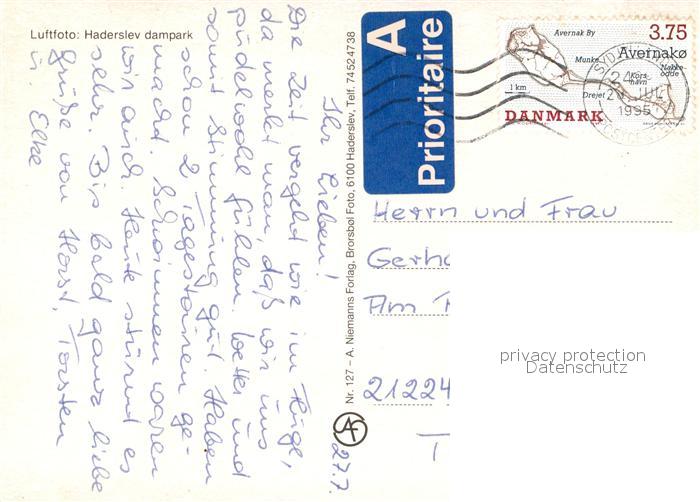 Luftfoto: Haderslev dampark
27.7.
Ihr Lieben!
Die Zeit vergeht wie im Fluge,
da merkt man, daß wir uns
pudelwohl fühlen. Wetter und
sonst Stimmung gut. Haben
schon 2 Tagestouren ge-
macht. Schwimmen waren
wir auch. Heute stürmt es
sehr. Bis bald ganz liebe
Grüße von Horst, Torsten
u. Elke
Nr. 127 – A. Niemanns Forlag, Brorsbøl Foto, 6100 Haderslev, Telf. 74524738
AF
A
Prioritaire
Avernak By
3.75
Munke
Avernakø
Nakke-
odde
Kors-
havn
1 km
Drejet
DANMARK
1995
Herrn und Frau
Gerh
Am
21224
privacy protection
Datenschutz